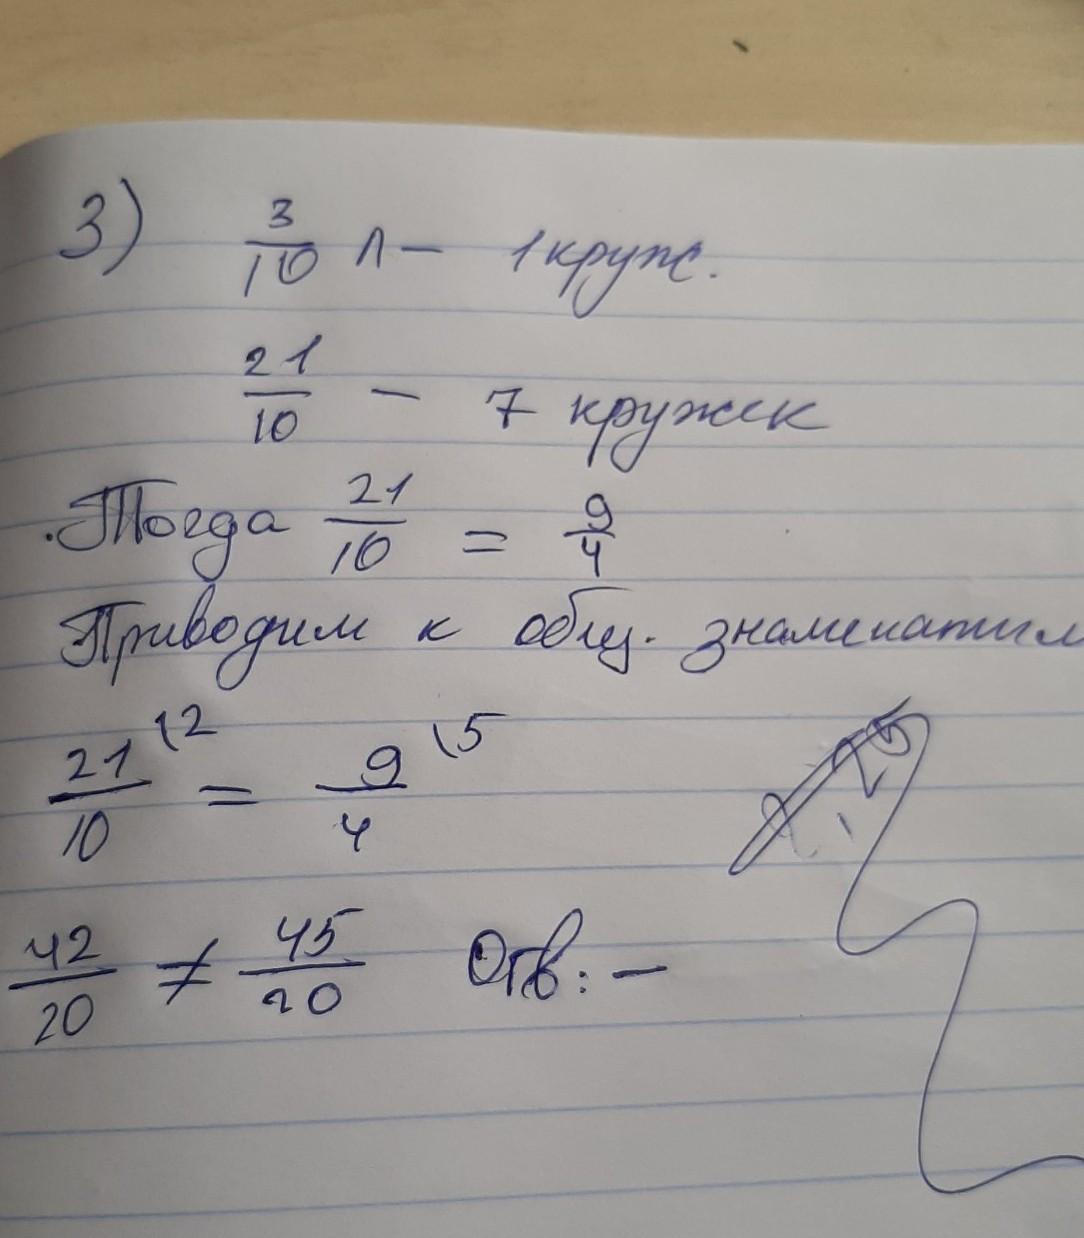 3) 3/10 л – 1 круж.
21/10 – 7 кружек
.Тогда 21/10 = 9/4
Приводим к общ. знаменател
21/10 \2 = 9/4 \5
42/20 ≠ 45/20 Отв: –